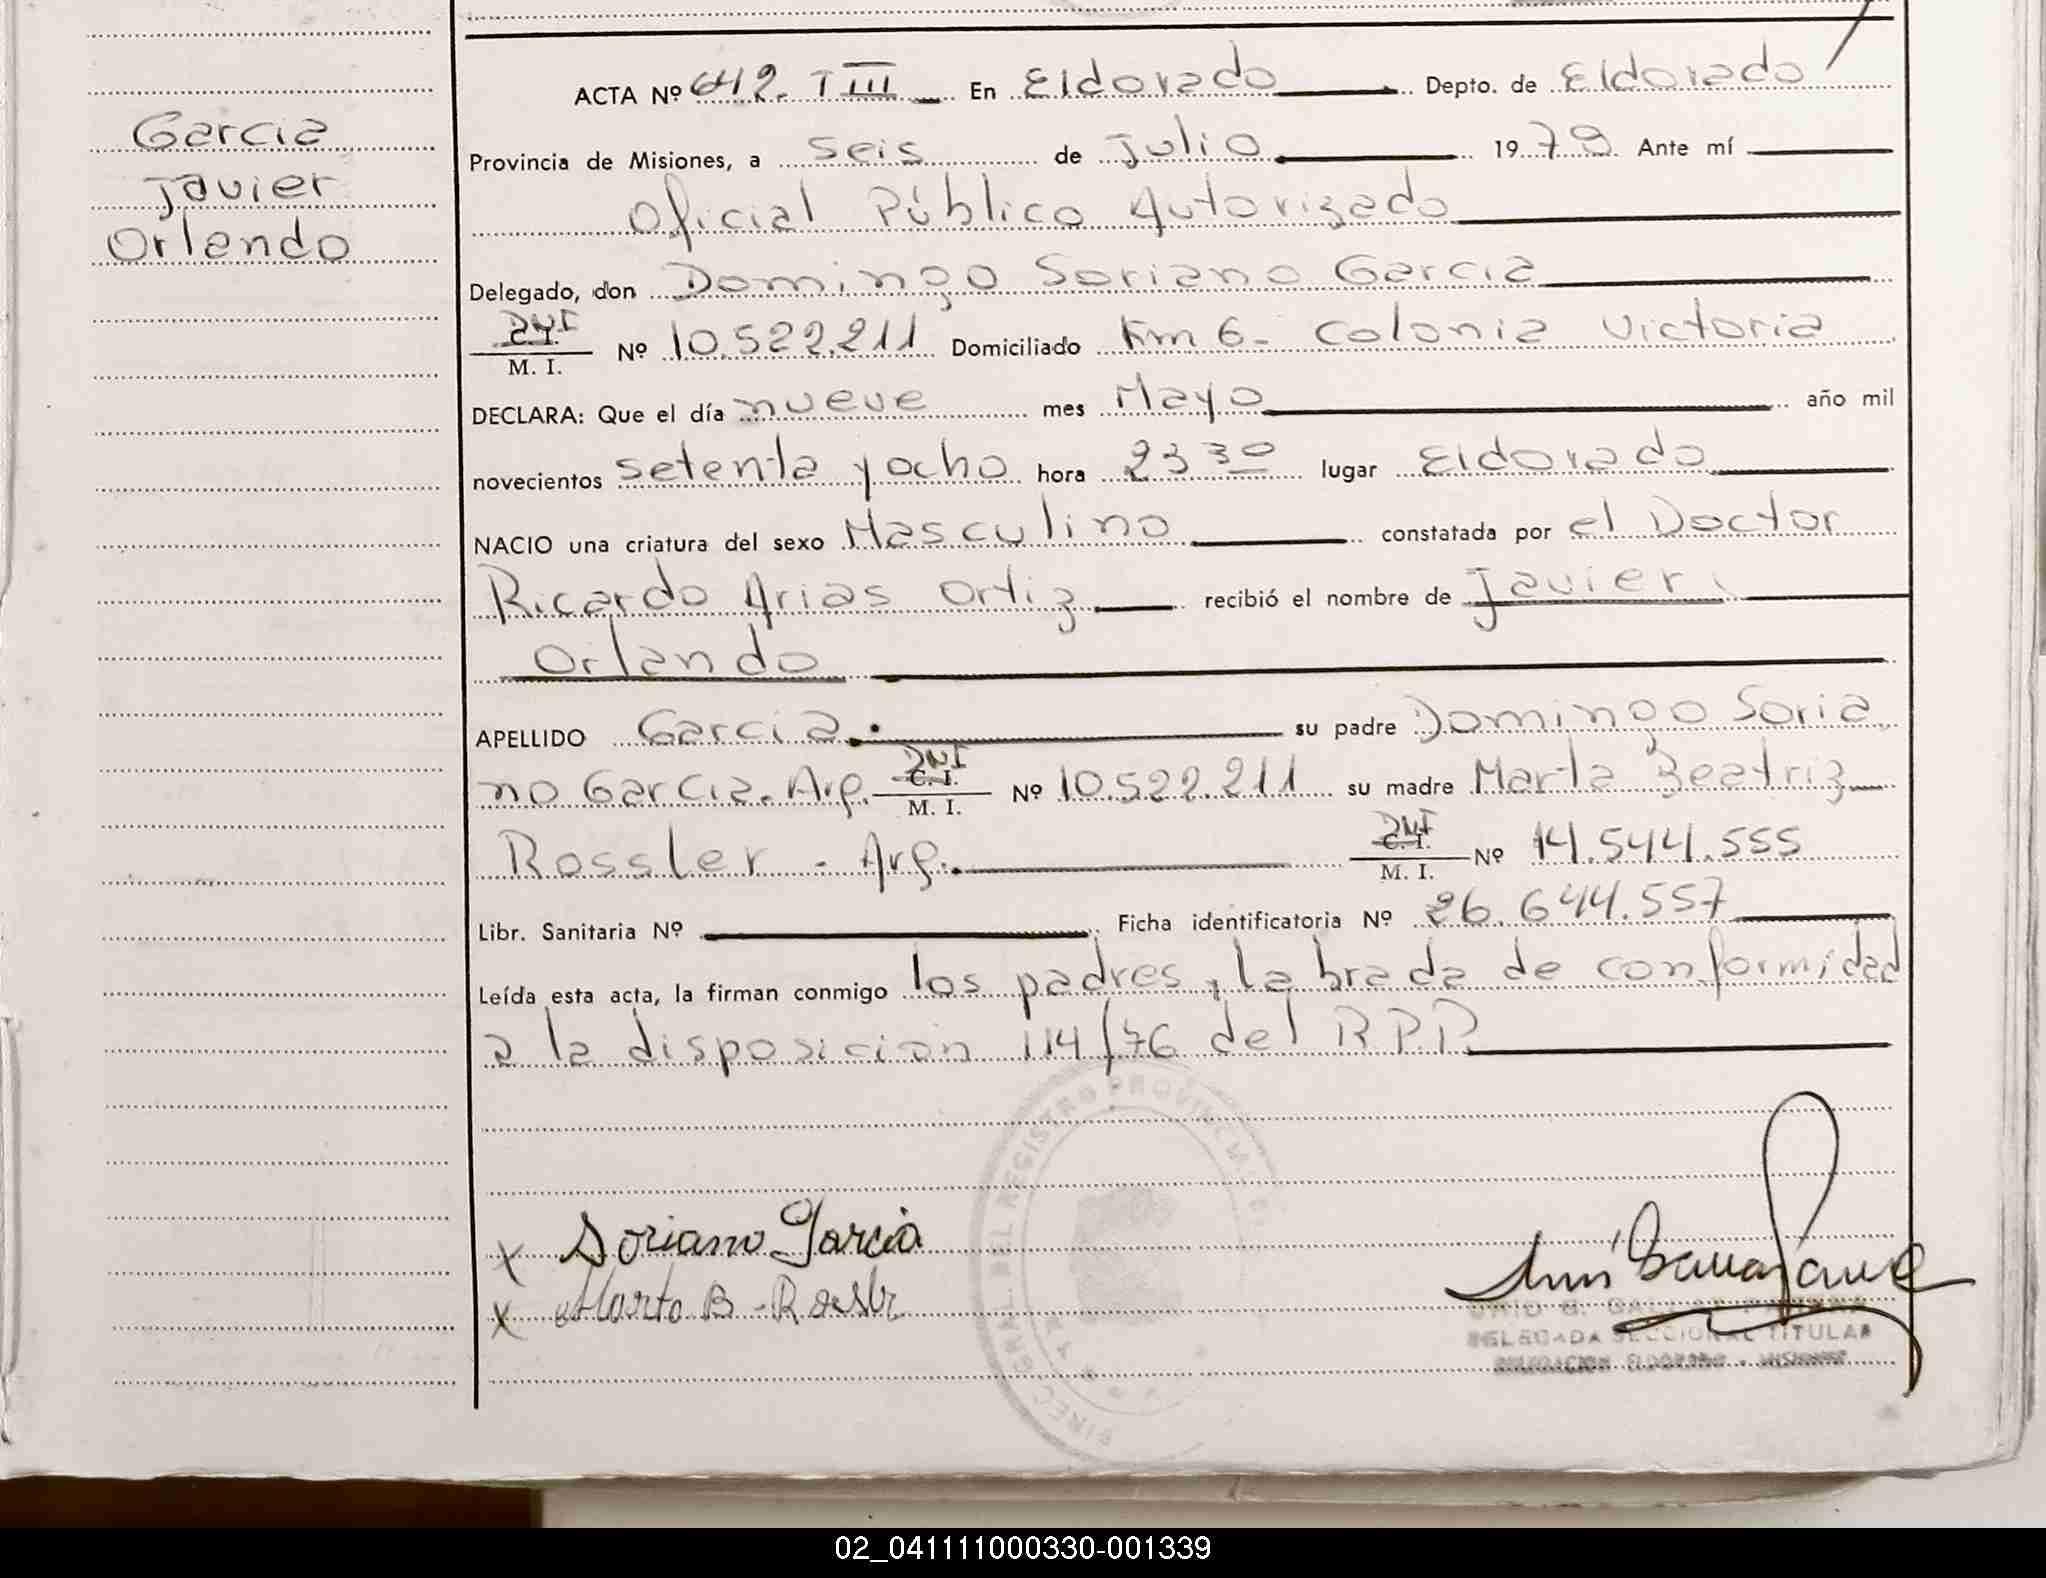 Garcia
Javier
Orlando
ACTA Nº 642. T III En Eldorado Depto. de Eldorado
Provincia de Misiones, a seis de Julio 1979 Ante mí
Oficial Público Autorizado
Delegado, don Domingo Soriano Garcia
DNI
C. I.
M. I. Nº 10.522.211 Domiciliado Km 6- Colonia Victoria
DECLARA: Que el día nueve mes Mayo año mil
novecientos setenta y ocho hora 23 30 lugar Eldorado
NACIO una criatura del sexo Masculino constatada por el Doctor
Ricardo Arias Ortiz recibió el nombre de Javier
Orlando
APELLIDO Garcia. su padre Domingo Soria
no Garcia. Arg. DNI C. I. M. I. Nº 10.522.211 su madre Marta Beatriz
Rossler - Arg. DNI C. I. M. I. Nº 14.544.555
Libr. Sanitaria Nº Ficha identificatoria Nº 26.644.557
Leída esta acta, la firman conmigo los padres, labrada de conformidad
a la disposición 114/76 del RPP
DIREC. GRAL. DEL REGISTRO PROVINCIAL DE
x Soriano Garcia
x Marta B - Rossler
DELEGADA SECCIONAL TITULAR
DELEGACION ELDORADO - MISIONES
02_041111000330-001339